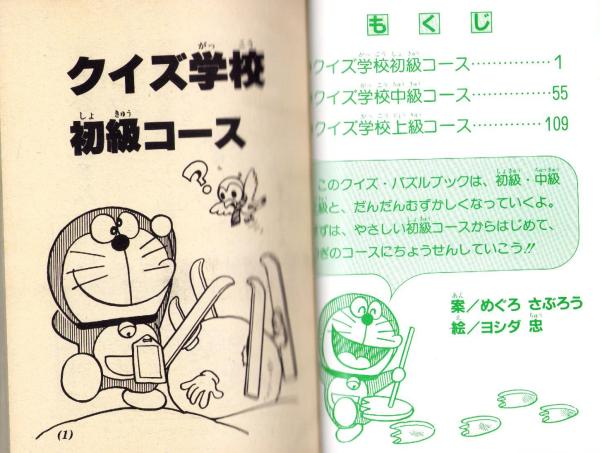 がっこう
クイズ学校
しょきゅう
初級コース
?
(1)
もくじ
クイズ学校初級コース……………1
クイズ学校中級コース……………55
クイズ学校上級コース……………109
このクイズ・パズルブックは、初級・中級
級と、だんだんむずかしくなっていくよ。
ずは、やさしい初級コースからはじめて、
ぎのコースにちょうせんしていこう!!
あん
案/めぐろ さぶろう
え ちゅう
絵/ヨシダ 忠